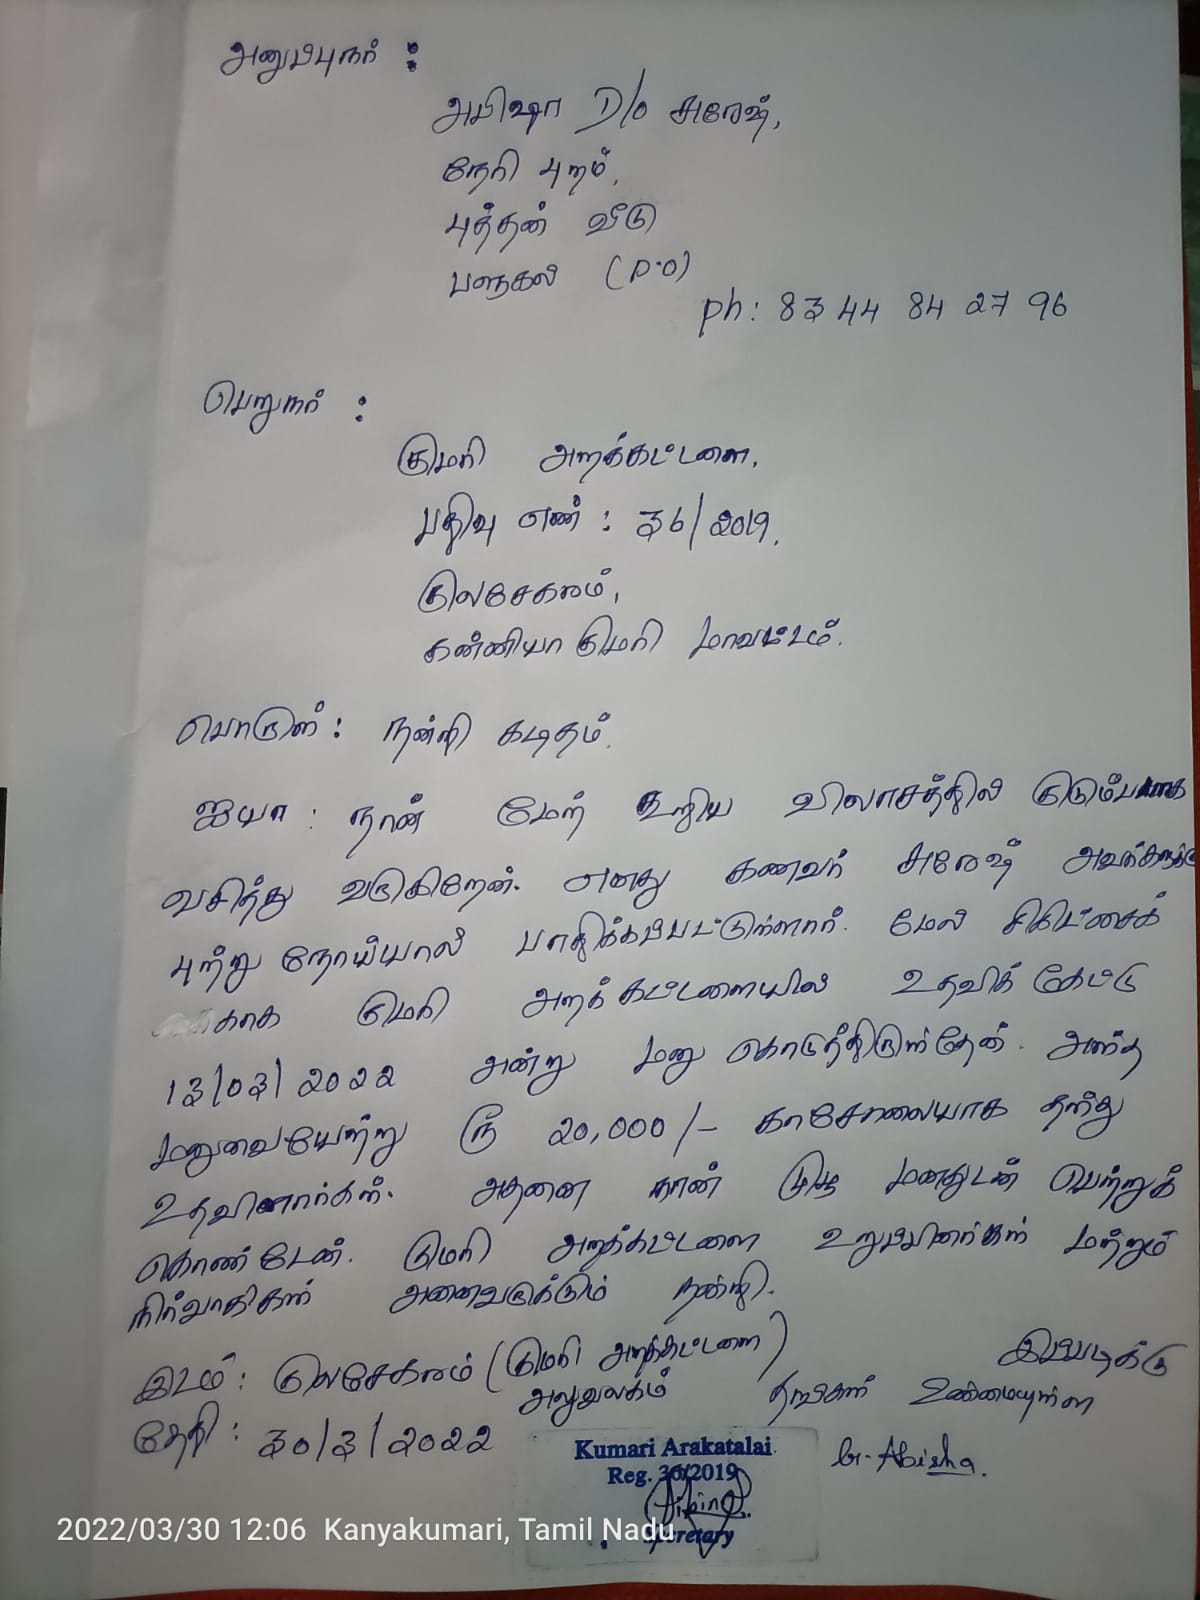 அனுப்புநர் :
அபிஷா D/o சுரேஷ்,
நேரி புரம்,
புத்தன் வீடு
பளுகல் (P.O)
ph: 83 44 84 27 96
பெறுநர் :
குமரி அறக்கட்டளை,
பதிவு எண் : 36/2019,
குலசேகரம்,
கன்னியாகுமரி மாவட்டம்.
பொருள் : நன்றி கடிதம்.
ஐயா : நான் மேற் கூறிய விலாசத்தில் குடும்பமாக
வசித்து வருகிறேன். எனது கணவர் சுரேஷ் அவர்களுக்கு
புற்று நோய்யால் பாதிக்கப்பட்டுள்ளார். மேல் சிகிட்சைக்
காக குமரி அறக் கட்டளையில் உதவிக் கேட்டு
13/03/2022 அன்று மனு கொடுத்திருந்தேன். அந்த
மனுவையேற்று ரூ 20,000/- காசோலையாக தந்து
உதவினார்கள். அதனை நான் முழு மனதுடன் பெற்றுக்
கொண்டேன். குமரி அறக்கட்டளை உறுப்பினர்கள் மற்றும்
நிர்வாகிகள் அனைவருக்கும் நன்றி.
இடம் : குலசேகரம் (குமரி அறக்கட்டளை) இப்படிக்கு
அலுவலகம் தங்கள் உண்மையுள்ள
தேதி : 30/3/2022
Kumari Arakatalai
Reg. 36/2019
Secretary
Abisha.
2022/03/30 12:06 Kanyakumari, Tamil Nadu